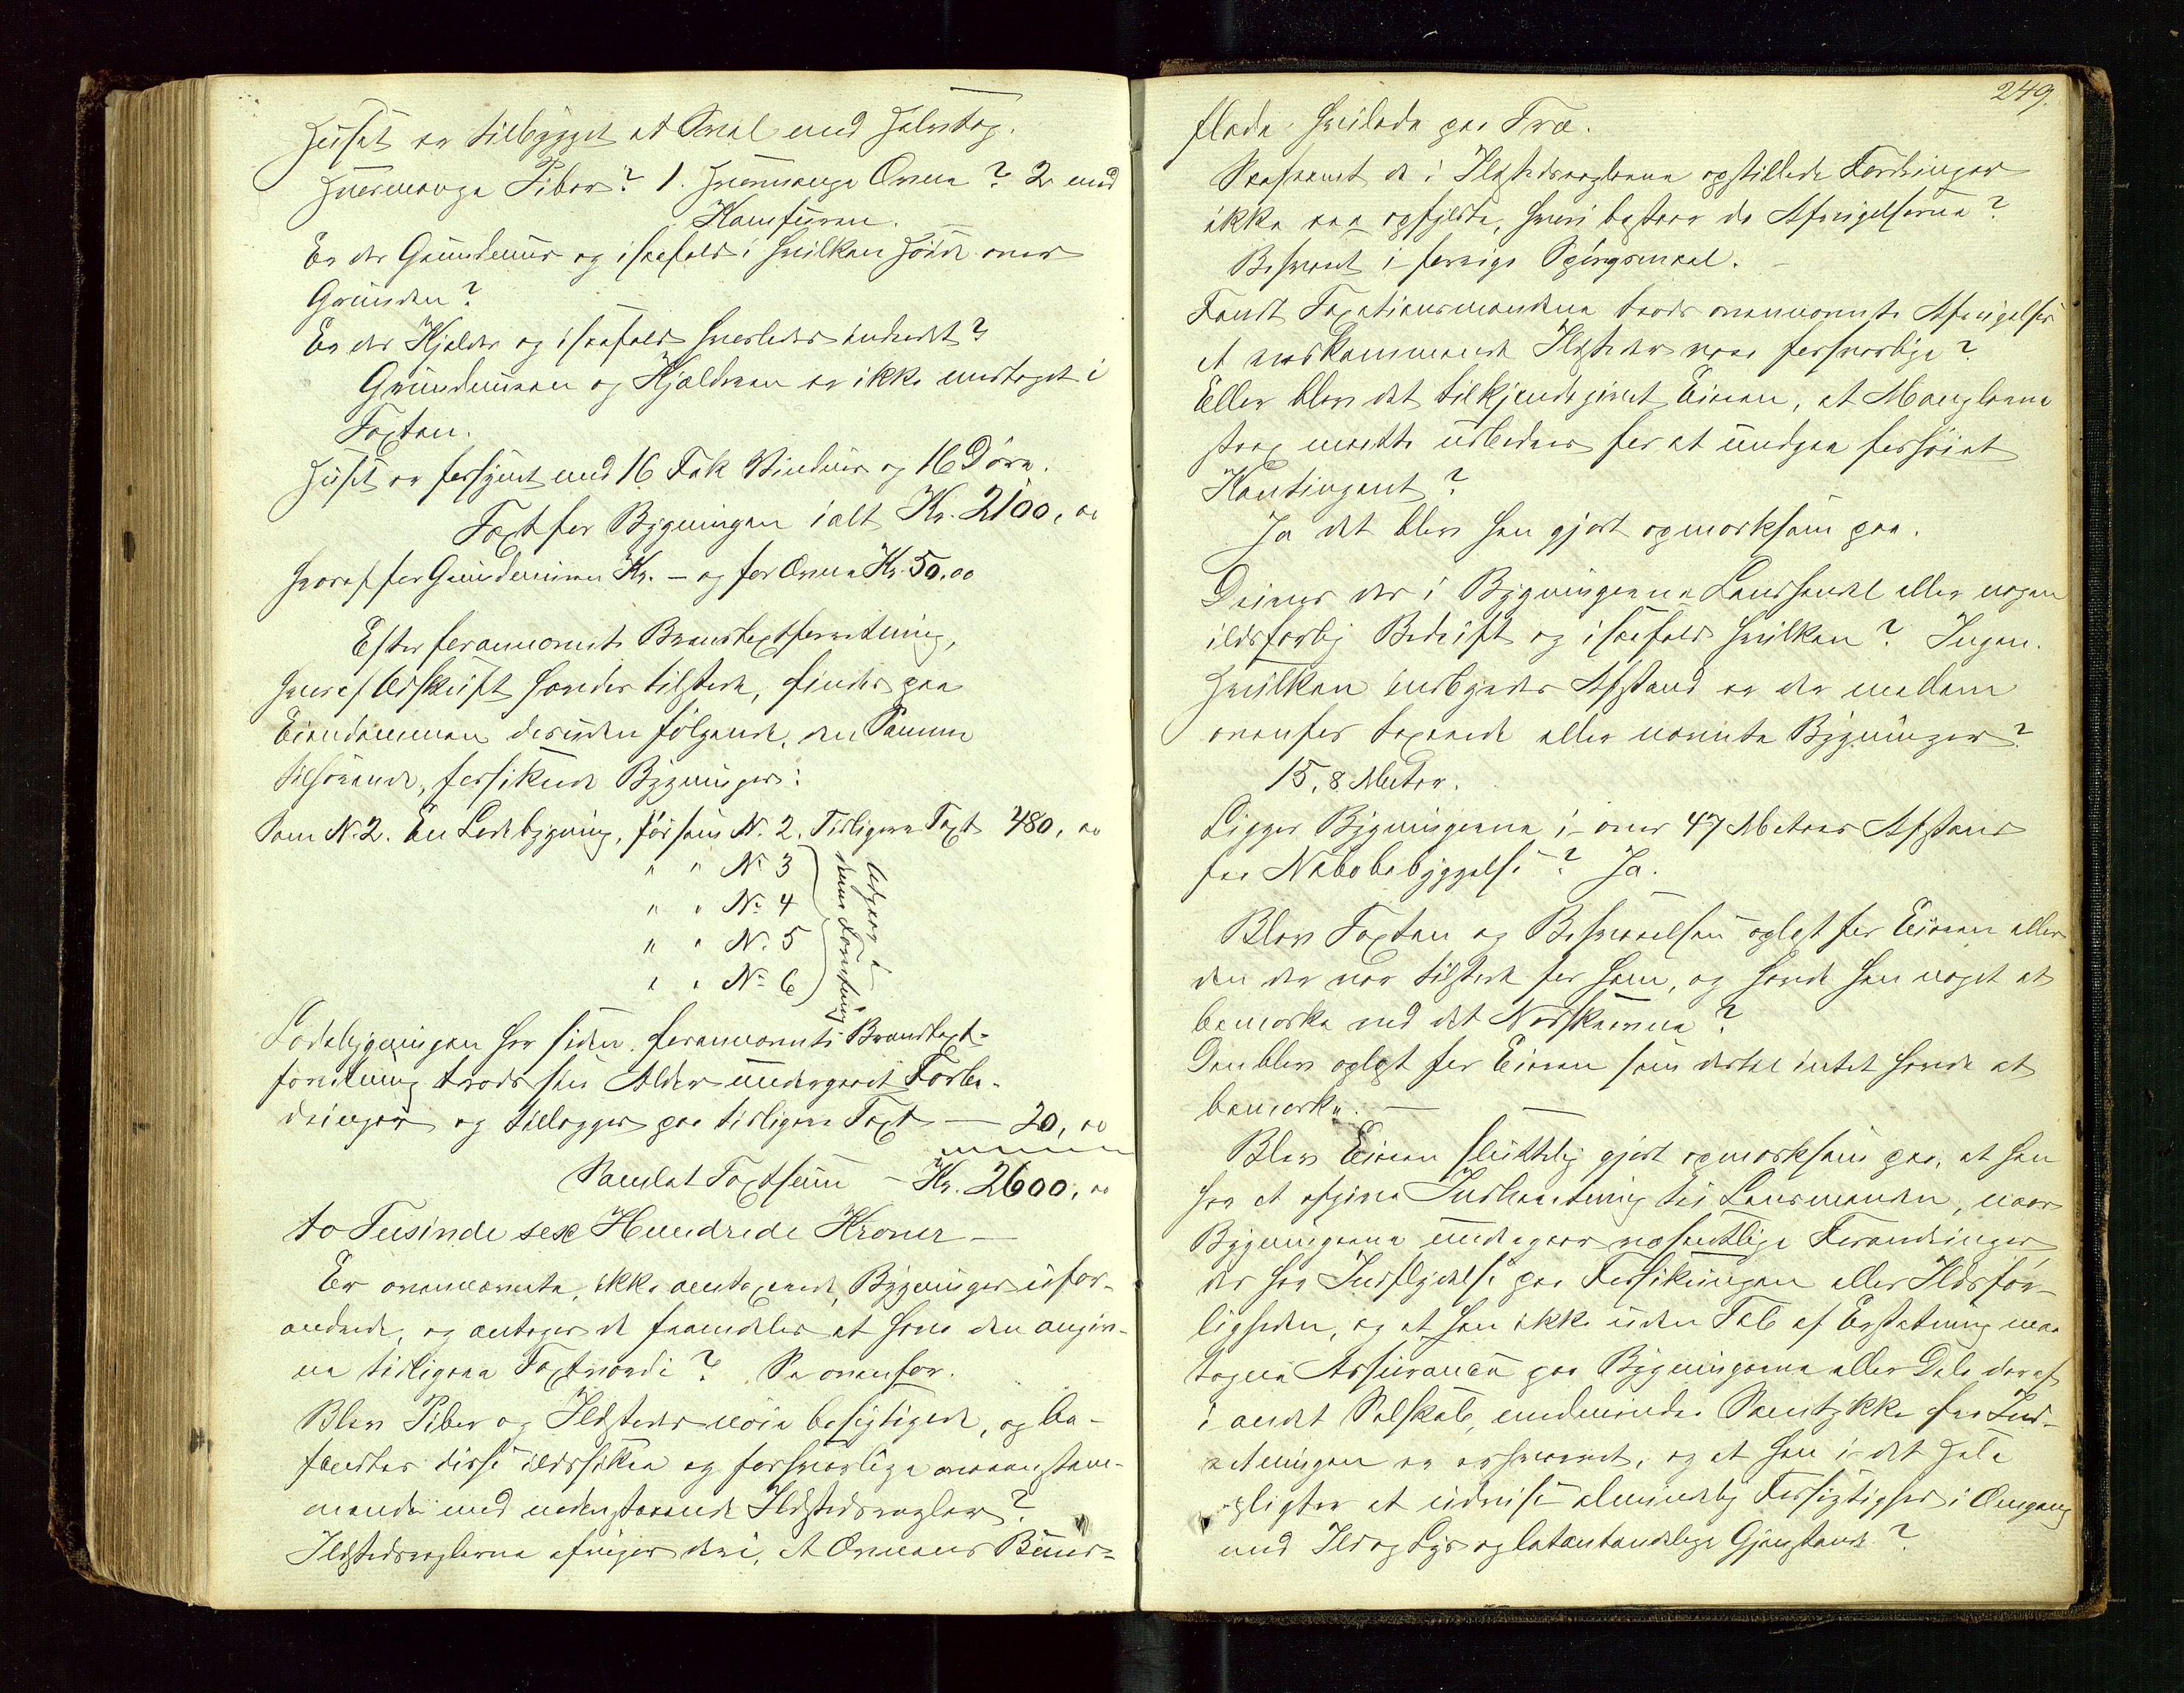 Huset er tilbygget et Sval med Halvtag.
Hvormange Piber? 1. Hvormange Ovne? 2 med
Komfuren.
Er der Grundmur og isaafald i hvilken Høide over
Grunden?
Er der Kjelder og isaafald hvorledes indredet?
Grundmuren og Kjelderen er ikke medtaget i
Taxten.
Huset er forsynet med 16 Fak Vinduer og 16 Døre.
Taxt for Bygningen ialt Kr. 2100,00
hvoraf for Grundmuren Kr. – og for Ovne Kr. 50.00
Efter forannævnte Brandtaxtforretning,
hvoraf Udskrift havdes tilstede, findes paa
Eiendommen desuden følgende, den Samme
tilhørende, forsikrede Bygninger:
Som No. 2. En Ladebygning, før som No. 2. Tidligere Taxt 480,00
" " No 3
" " No. 4
" " No. 5
" " No. 6
Udgaar i
denne Forretning
Ladebygningen har siden forannævnte Brandtaxt-
forretning trods sin Alder undergaaet Forbe-
dringer og tillægges paa tidligere Taxt — 20,00
Samlet Taxtsum – Kr. 2600,00
to Tusinde sex Hundrede Kroner —
Er ovennævnte, ikke omtaxerede, Bygninger ufor-
andrede, og antages de fremdeles at have den angiv-
ne tidligere Taxtværdi? Se ovenfor.
Blev Piber og Ildsteder nøie besigtigede, og be-
fandtes disse ildssikre og forsvarlige overensstem-
mende med nedenstaaende Ildstedsregler?
Ildstedsreglerne afviger deri, at Ovnenes Bund-
249.
flade hvilede paa Træ.
Saafremt de i Ildstedsreglerne opstillede Fordringer
ikke ere opfyldte, hvori bestaar da Afvigelserne?
Besvaret i forrige Spørgsmaal. –
Fandt Taxationsmændene trods ovennævnte Afvigelser
at vedkommende Ildsteder vare forsvarlige?
Eller blev det tilkjendegivet Eieren, at Manglerne
strax maatte udbedres for at undgaa forhøiet
Kontingent?
Ja det blev han gjort opmærksom paa.
Drives der i Bygningerne Landhandel eller nogen
ildsfarlig Bedrift og isaafald hvilken? Ingen.
Hvilken indbyrdes Afstand er der mellem
ovenfor taxerede eller nævnte Bygninger?
15,8 Meter.
Ligger Bygningerne i over 47 Meters Afstand
fra Nabobebyggelse? Ja.
Blev Taxten og Beskrivelsen oplæst for Eieren eller
den der var tilstede for ham, og havde han noget at
bemærke ved det Nedskrevne?
Den blev oplæst for Eieren som dertil intet havde at
bemærke. —
Blev Eieren sluttelig gjort opmærksom paa, at han
har at afgive Indberetning til Lensmanden, naar
Bygningerne undergaar væsentlige Forandringer,
der har Indflydelse paa Forsikringen eller Ildsfar-
ligheden, og at han ikke uden Tab af Erstatning maa
tegne Assurance paa Bygningerne eller Dele deraf
i andet Selskab, medmindre Samtykke fra Ind-
retningen er erhvervet, og at han i det Hele
pligter at udvise almindelig Forsigtighed i Omgang
med Ild og Lys og letantændelige Gjenstande?